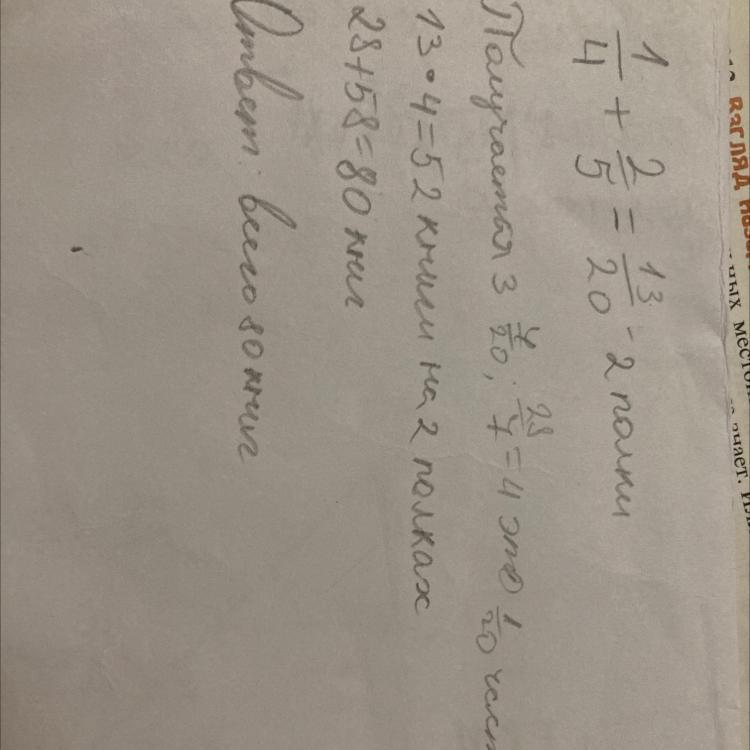 1/4 + 2/5 = 13/20 - 2 полки
Получается 3 7/20; 28/7 = 4 это 1/20 част
13•4=52 книги на 2 полках
28+58=80 книг
Ответ: всего 80 книг
ВЗГЛЯД
ных
знает.